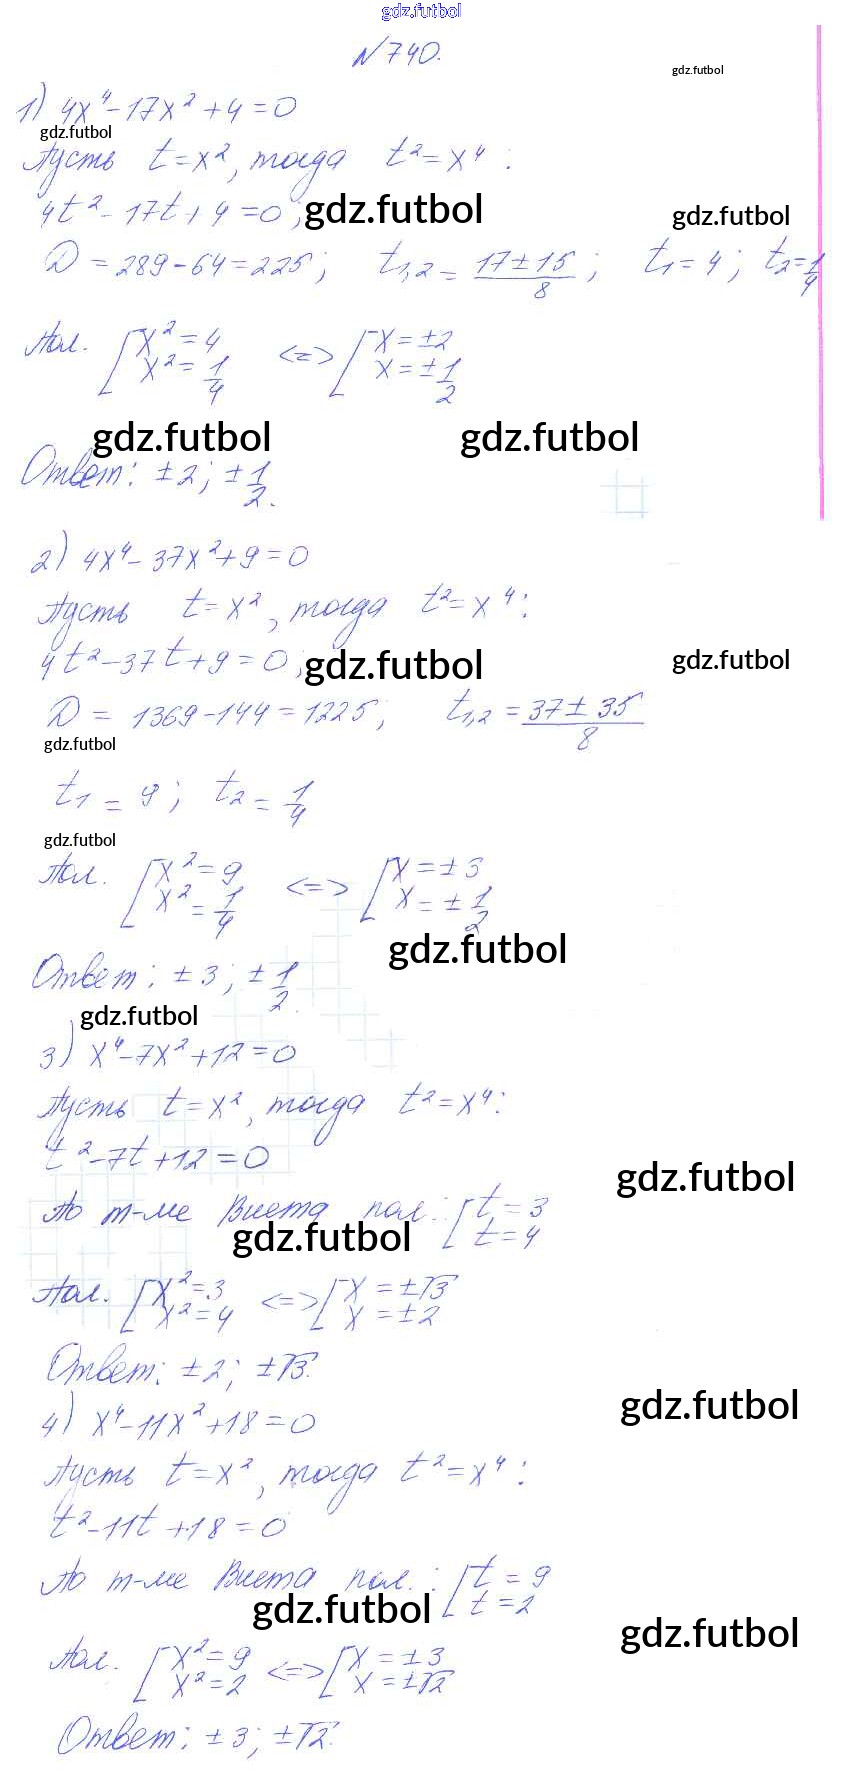 gdz.futbol
N 740.
gdz.futbol
1) 4x⁴-17x²+4=0
gdz.futbol
Пусть t=x², тогда t²=x⁴:
4t²-17t+4=0; gdz.futbol gdz.futbol
D=289-64=225; t₁,₂=(17±15)/8; t₁=4; t₂=1/4
Пол. [x²=4 <=> [x=±2
x²=1/4 x=±1/2
gdz.futbol gdz.futbol
Ответ: ±2; ±1/2.
2) 4x⁴-37x²+9=0
Пусть t=x², тогда t²=x⁴:
4t²-37t+9=0; gdz.futbol gdz.futbol
D=1369-144=1225; t₁,₂=(37±35)/8
gdz.futbol
t₁=9; t₂=1/4
gdz.futbol
Пол. [x²=9 <=> [x=±3
x²=1/4 x=±1/2
gdz.futbol
Ответ: ±3; ±1/2.
gdz.futbol
3) x⁴-7x²+12=0
Пусть t=x², тогда t²=x⁴:
t²-7t+12=0
gdz.futbol
По т-ме Виета пол.: [t=3
t=4
gdz.futbol
Пол. [x²=3 <=> [x=±√3
x²=4 x=±2
Ответ: ±2; ±√3.
gdz.futbol
4) x⁴-11x²+18=0
Пусть t=x², тогда t²=x⁴:
t²-11t+18=0
По т-ме Виета пол.: [t=9
t=2
gdz.futbol
gdz.futbol
Пол. [x²=9 <=> [x=±3
x²=2 x=±√2
Ответ: ±3; ±√2.